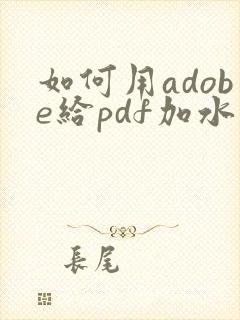 如何用adob
e給pdf加水
長尾